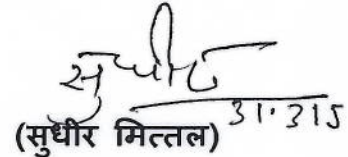 सुधीर
31.315
(सुधीर मित्तल)